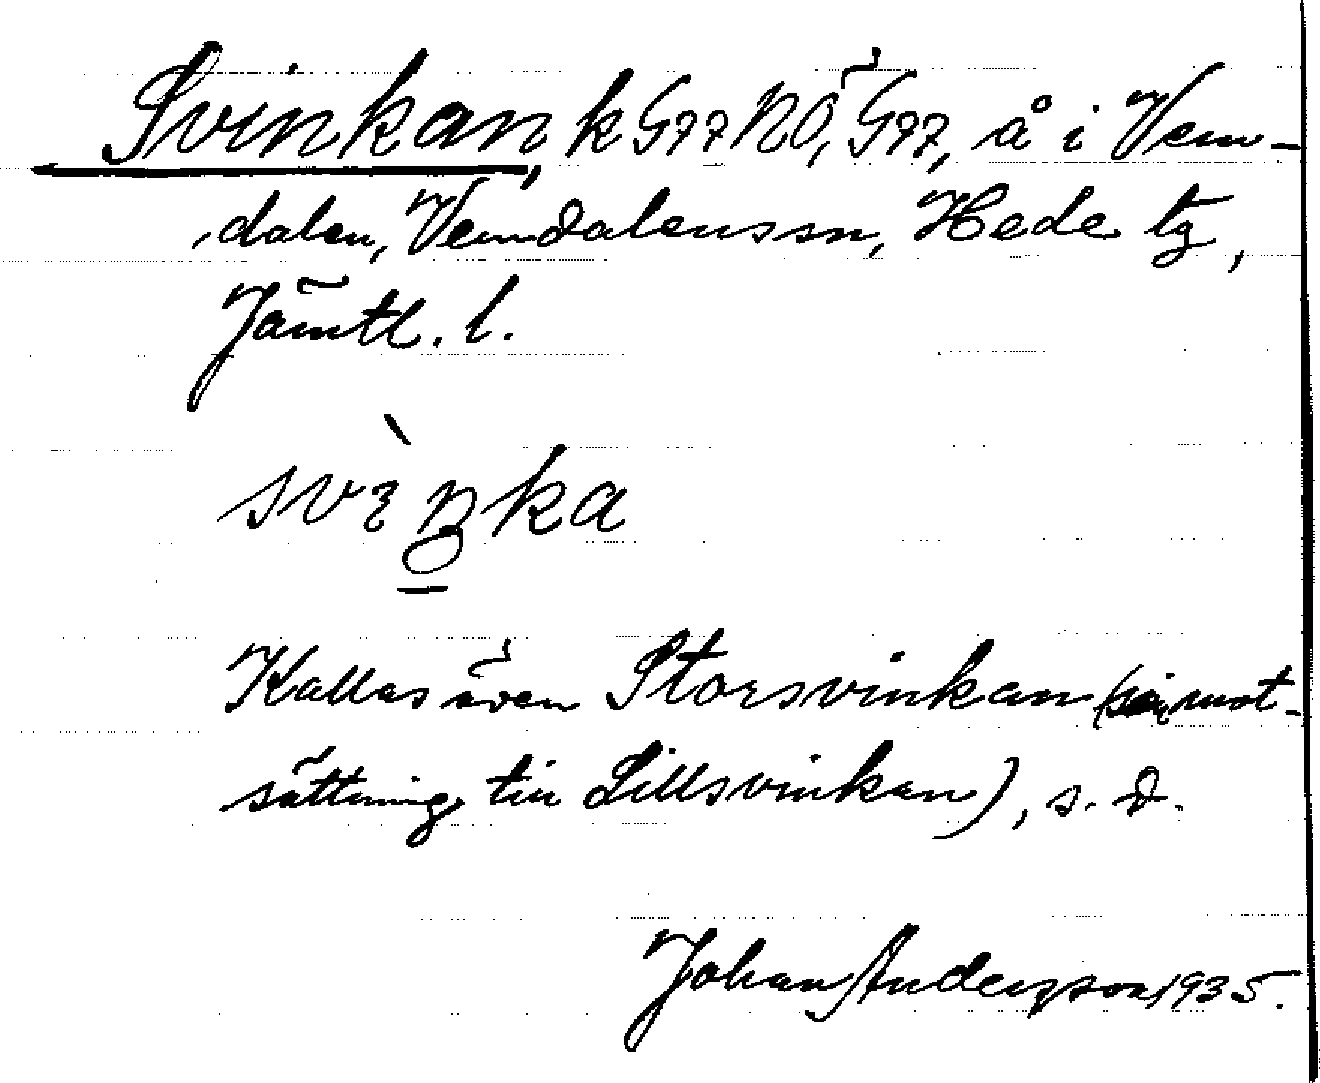 Svinkan, k G77 NO, G97, å i Vem-
dalen, Vemdalens sn, Hede tg,
Jämtl. l.
svìŋka
Kallas även Storsvinkan (i mot-
sättning till Lillsvinkan), s. d.
Johan Anderson 1935.